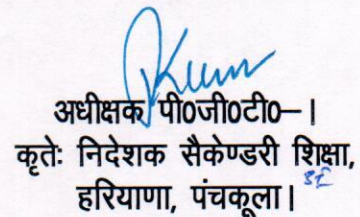 अधीक्षक पी0जी0टी0—।
कृतेः निदेशक सैकेण्डरी शिक्षा,
हरियाणा, पंचकूला।